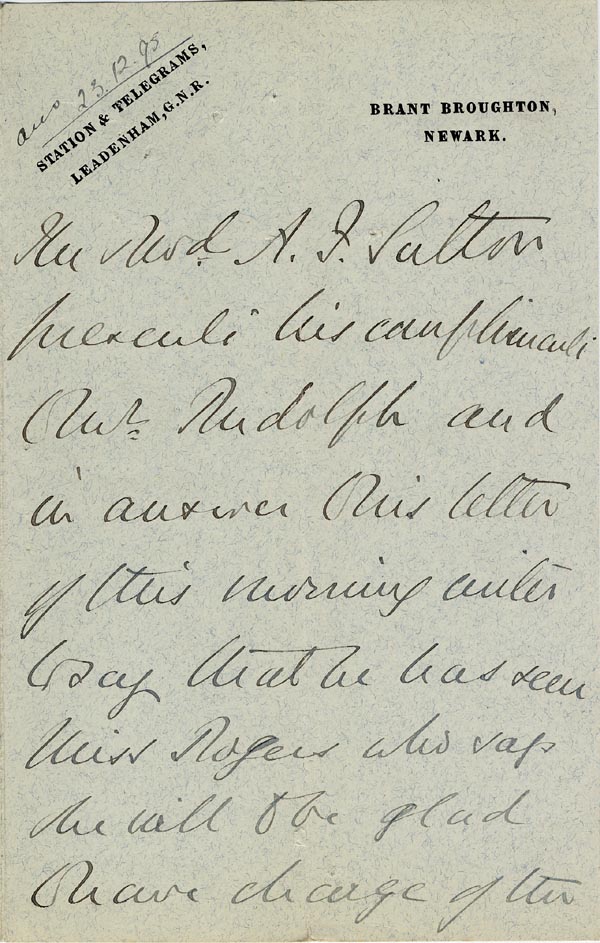 ans 23.12.95
STATION & TELEGRAMS,
LEADENHAM, G.N.R.
BRANT BROUGHTON,
NEWARK.
The Revd. A. F. Sutton
presents his compliments
to Mr. Rudolph and
in answer to his letter
of this morning writes
to say that he has seen
Miss Rogers who says
she will be glad
to have charge of the